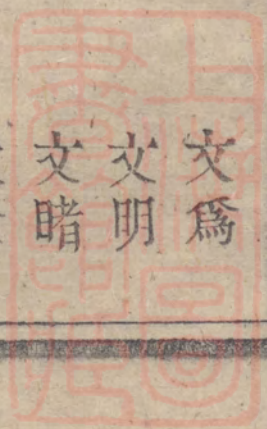 文爲
文明
文睹